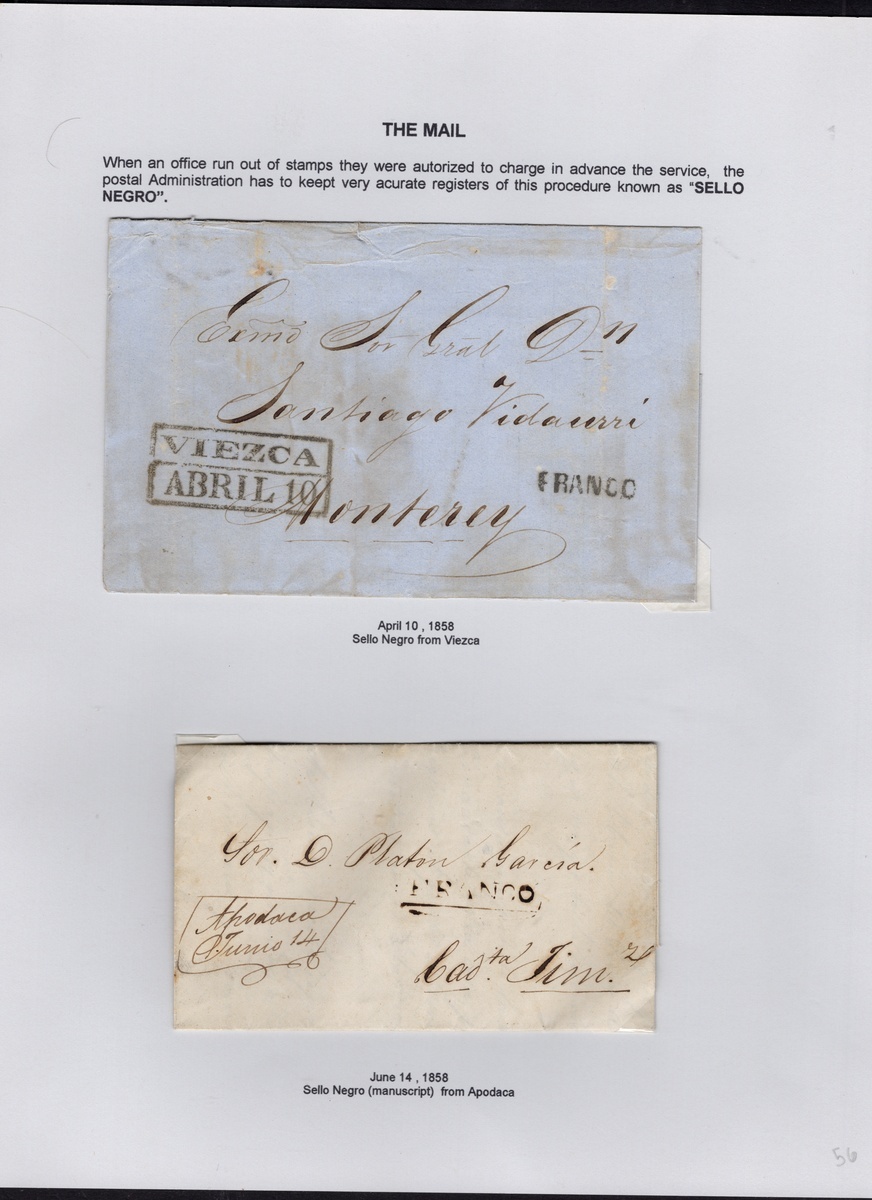 THE MAIL
When an office run out of stamps they were autorized to charge in advance the service, the
postal Administration has to keept very acurate registers of this procedure known as “SELLO
NEGRO”.
Exmo Sor Gral Dn
Santiago Vidaurri
VIEZCA
ABRIL 10
FRANCO
Monterey
April 10 , 1858
Sello Negro from Viezca
Sor. D. Platon García.
FRANCO
Apodaca
Junio 14
Cad.ta Jim.z
June 14 , 1858
Sello Negro (manuscript) from Apodaca
56